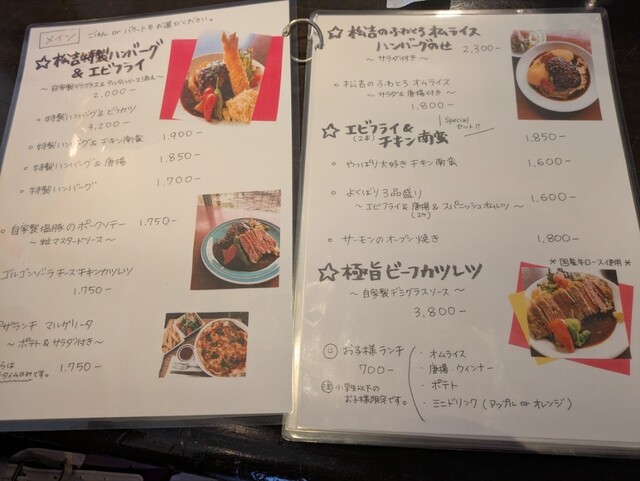 メイン
ごはん or バケットをお選びください。
☆ 松吉特製ハンバーグ
& エビフライ
～自家製デミグラス&タルタルソース添え～
2,000 −
◦ 特製ハンバーグ & ビーフカツ
3,200 −
◦ 特製ハンバーグ & チキン南蛮 1,900 −
◦ 特製ハンバーグ & 唐揚 1,850 −
◦ 特製ハンバーグ 1,700 −
◦ 自家製塩豚のポークソテー 1,750 −
～ 粒マスタードソース ～
ゴルゴンゾーラチーズチキンカツレツ
1,750 −
ピザランチ マルゲリータ
～ ポテト&サラダ付き ～
タイムのみです。 1,750 −
☆ 松吉のふわとろオムライス
ハンバーグのせ 2,300 −
～ サラダ付き ～
◦ 松吉のふわとろオムライス
～ サラダ & 唐揚付き ～
1,800 −
Special
セット!!
☆ エビフライ &
(2本) チキン南蛮 1,850 −
◦ やっぱり大好き チキン南蛮 1,600 −
◦ よくばり3品盛り 1,600 −
～ エビフライ & 唐揚 & スパニッシュオムレツ ～
◦ サーモンのオーブン焼き 1,800 −
＊国産牛ロース使用＊
☆ 極旨ビーフカツレツ
～ 自家製デミグラスソース ～
3,800 −
お子様ランチ
700 −
注 小学生以下の
お子様限定です。
・オムライス
・唐揚・ウィンナー
・ポテト
・ミニドリンク (アップル or オレンジ)